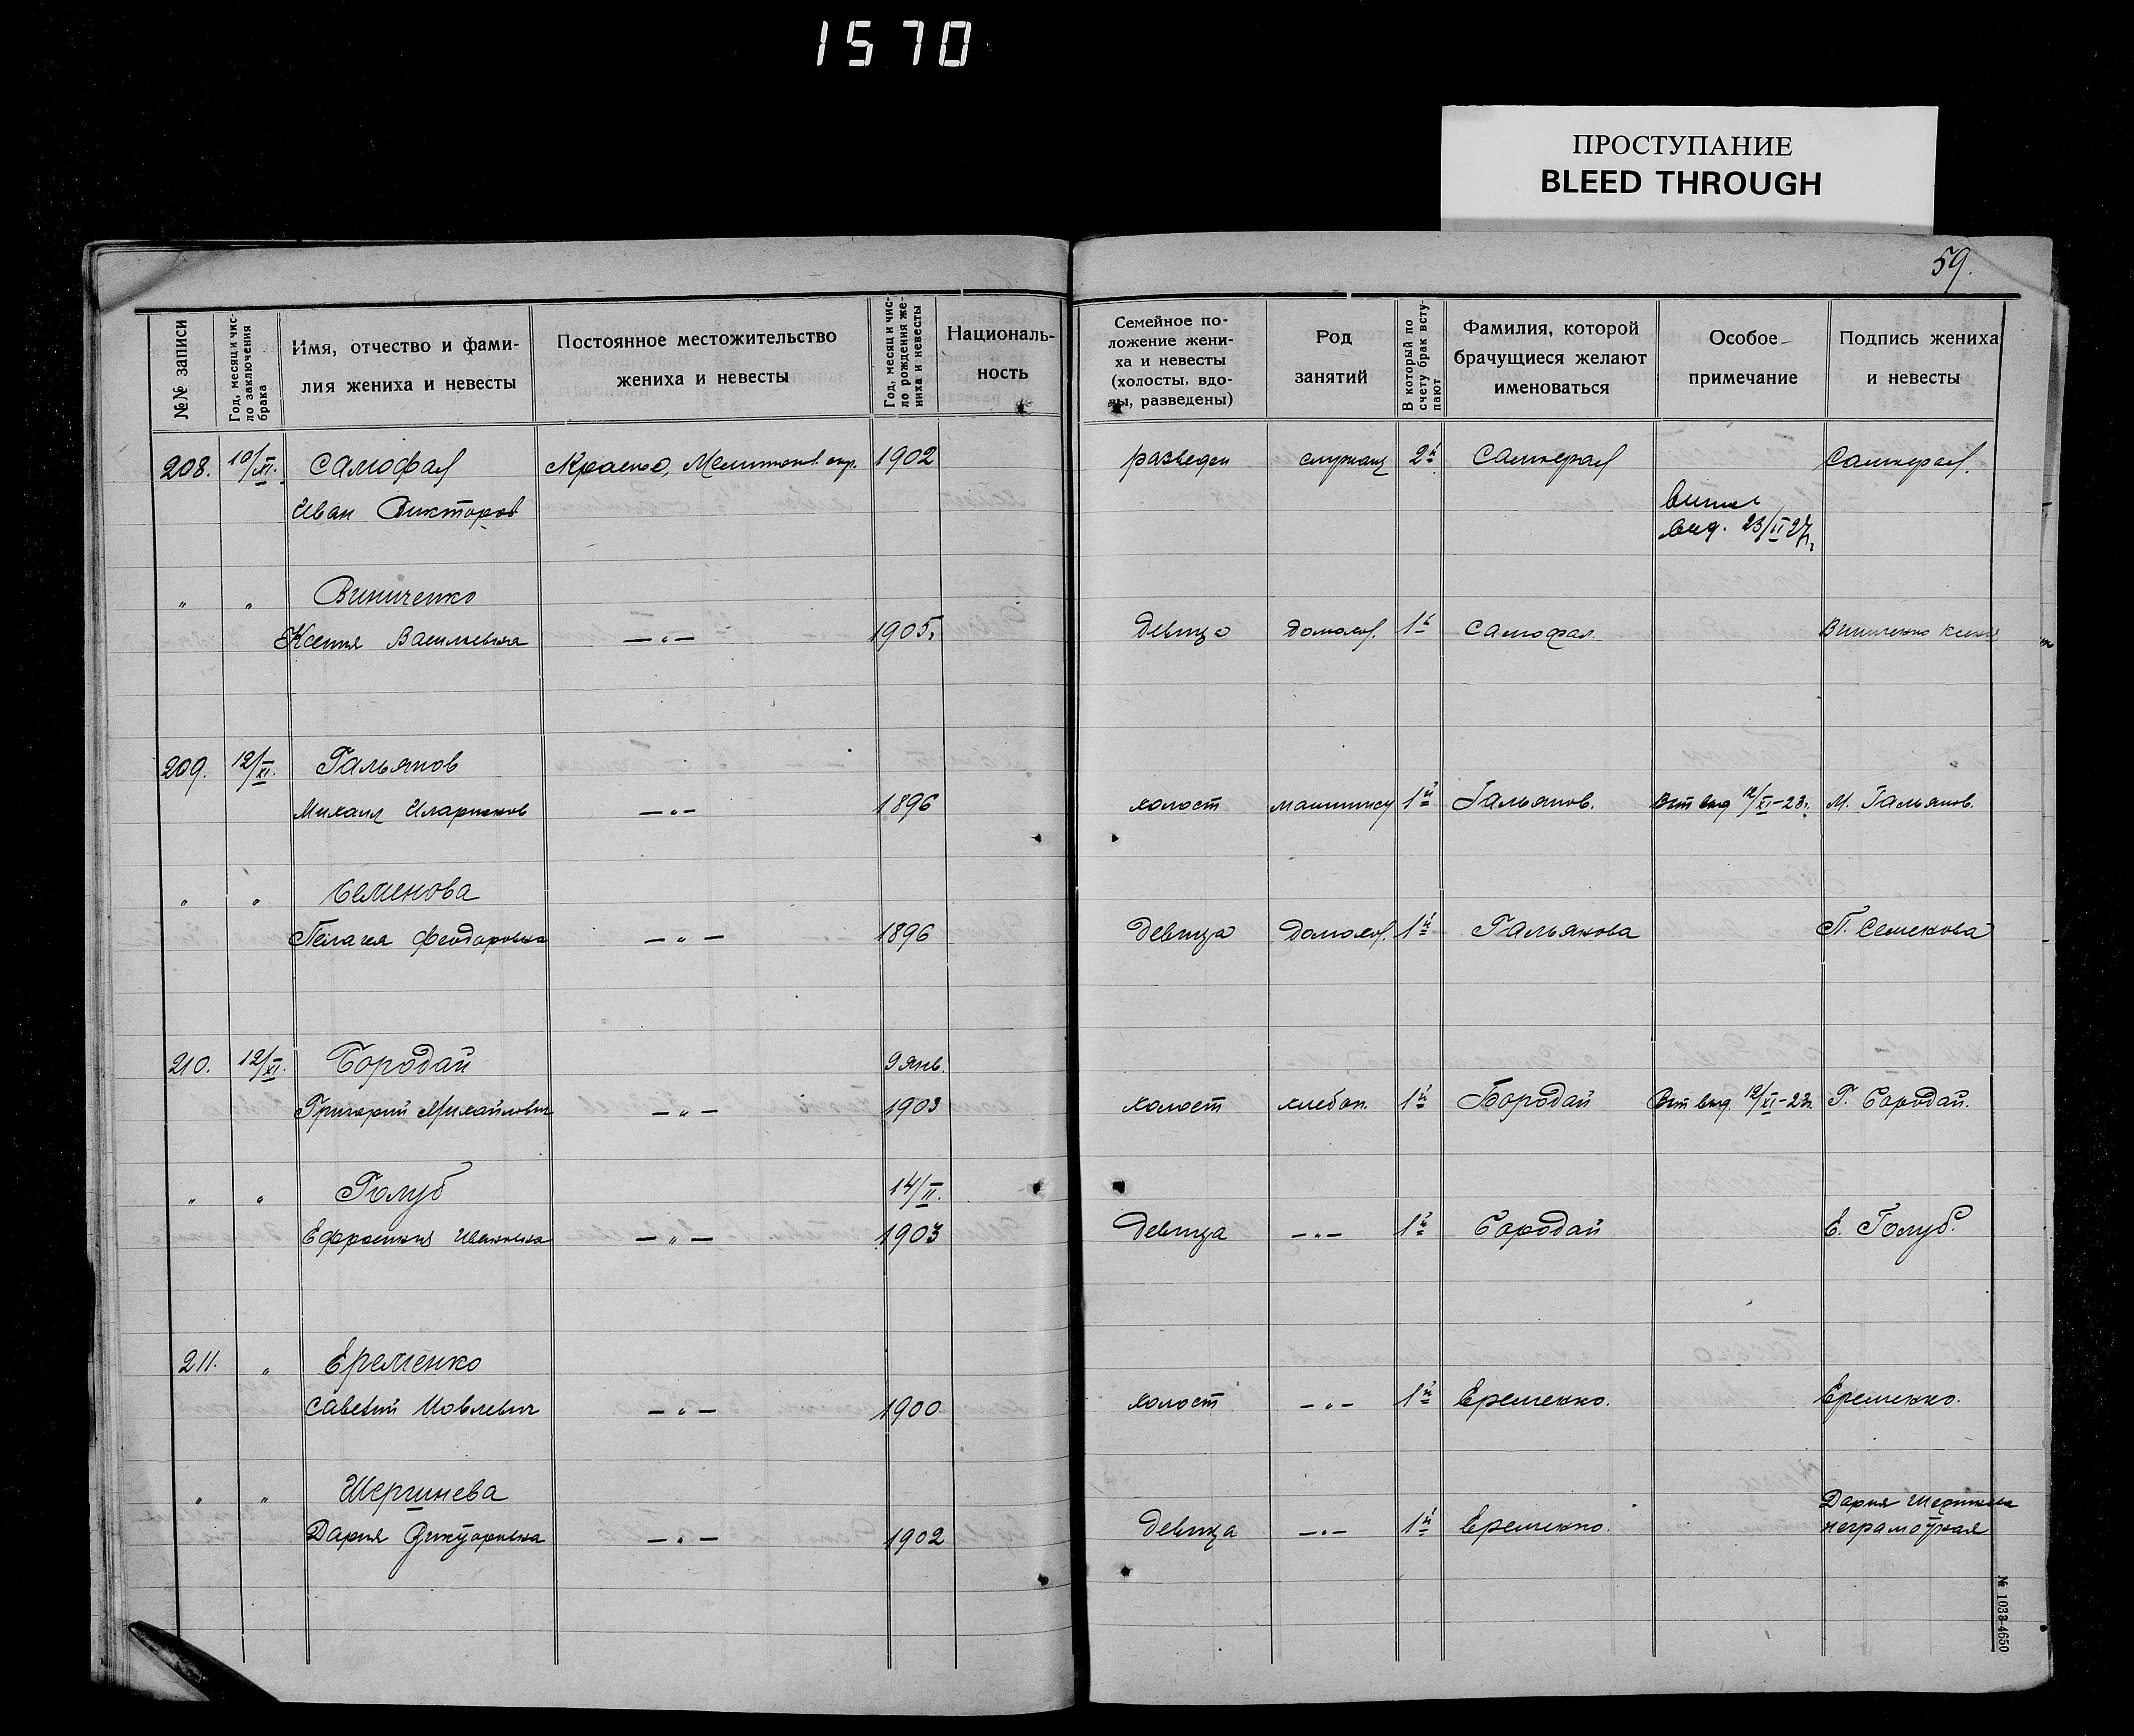 1570
ПРОСТУПАНИЕ
BLEED THROUGH
59.
№№ записи
Год, месяц и чис-
ло заключения
брака
Имя, отчество и фами-
лия жениха и невесты
Постоянное местожительство
жениха и невесты
Год, месяц и чис-
ло рождения же-
ниха и невесты
Националь-
ность
Семейное по-
ложение жени-
ха и невесты
(холосты, вдо-
вы, разведены)
Род
занятий
В который по
счету брак всту-
пают
Фамилия, которой
брачущиеся желают
именоваться
Особое
примечание
Подпись жениха
и невесты
208. 10/XI. Самофал 1902 разведен 2й
Иван Викторов
23/II 27г
" " Виниченко
Ксения Васильевна —"— 1905. девица домохоз. 1й Самофал. Виниченко
209. 12/XI. Гальянов
Михаил Иларионов —"— 1896 холост машинист 1й Гальянов. 12/XI-23г. М. Гальянов.
" " Семенова
Пелагея Феодоровна —"— 1896 девица домохоз. 1й Гальянова П. Семенова
210. 12/XI. Бородай 9 янв.
Григорий Михайлович —"— 1903 холост хлебоп. 1й Бородай 12/XI-23г. Г. Бородай.
" " Голуб 14/II.
Ефросиния Ивановна —"— 1903 девица —"— 1й Бородай Е. Голуб.
211. " Еременко
Савелий Иовлевич —"— 1900 холост —"— 1й Еременко. Еременко.
" " Шершнева Дария
Дария —"— 1902 девица —"— 1й Еременко. неграмотная
№ 1033-4650